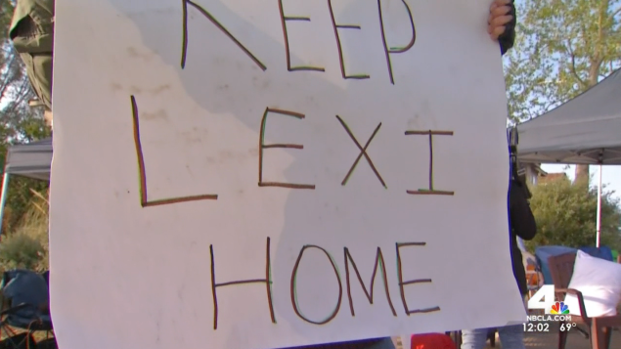 KEEP
LEXI
HOME
4
NBCLA.COM
12:02 69°